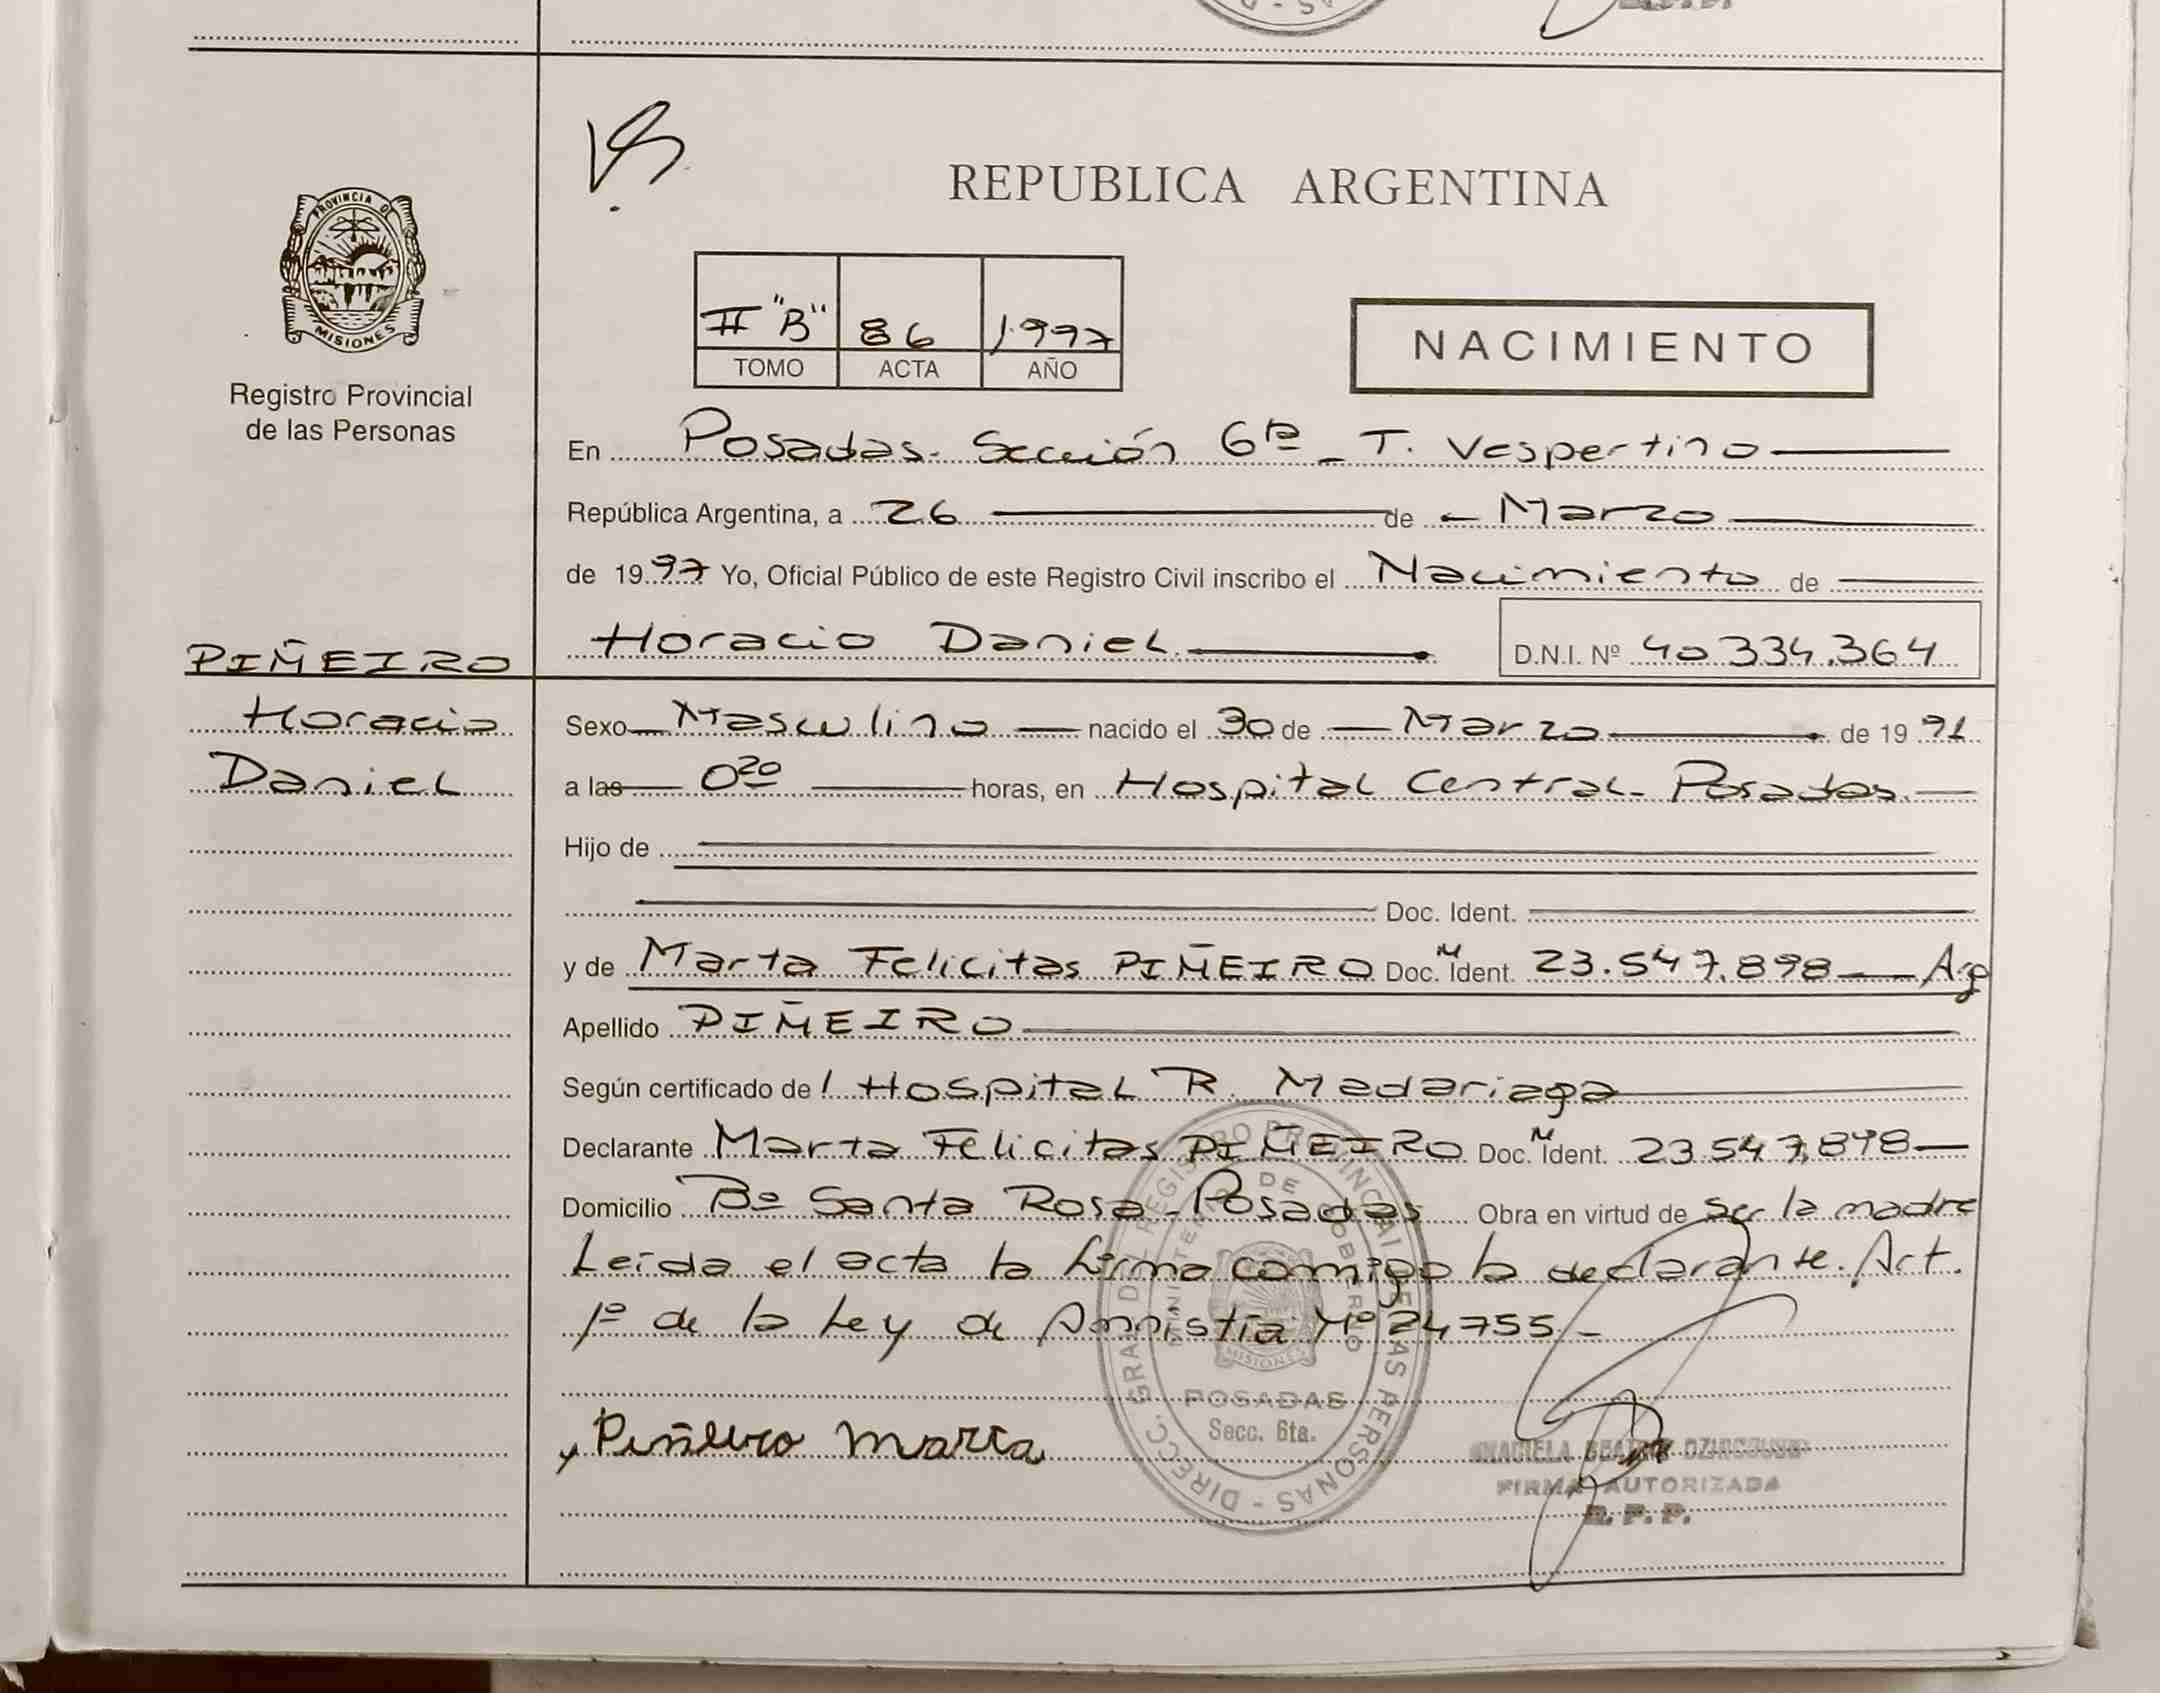 PROVINCIA DE
MISIONES
Registro Provincial
de las Personas
PIÑEIRO
Horacio
Daniel
REPUBLICA ARGENTINA
II "B" 86 1997
TOMO ACTA AÑO
NACIMIENTO
En Posadas- Sección 6ta - T. Vespertino
República Argentina, a 26 de - Marzo
de 1997 Yo, Oficial Público de este Registro Civil inscribo el Nacimiento de
Horacio Daniel. D.N.I. Nº 40.334.364
Sexo Masculino nacido el 30 de Marzo de 1991
a las 0 20 horas, en Hospital Central- Posadas.
Hijo de
Doc. Ident.
y de Marta Felicitas PIÑEIRO Doc. M Ident. 23.547.898 Arg
Apellido PIÑEIRO
Según certificado de l Hospital R. Madariaga
Declarante Marta Felicitas PIÑEIRO Doc. M Ident. 23.547.898
Domicilio Bº Santa Rosa - Posadas Obra en virtud de ser la madre
Leída el acta la firma conmigo la declarante. Art.
1º de la Ley de Amnistía Nº 24755 -
Piñeiro Marta
DIRECC. GRAL DEL REGISTRO PROVINCIAL DE LAS PERSONAS -
MINISTERIO DE GOBIERNO
MISIONES
POSADAS
Secc. 6ta.
FIRMA AUTORIZADA
R. P. P.